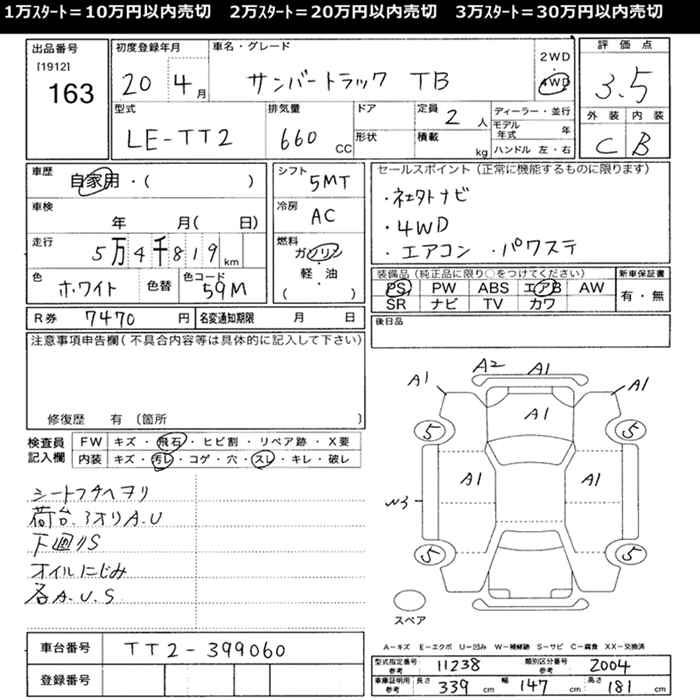 1万ｽﾀｰﾄ＝10万円以内売切　2万ｽﾀｰﾄ＝20万円以内売切　3万ｽﾀｰﾄ＝30万円以内売切
出品番号 初度登録年月 車名・グレード 評価点
[1912] 2WD
163 20 4月 サンバートラック TB 4WD 3.5
型式 排気量 ドア 定員 2人 ディーラー・並行 外装 内装
LE-TT2 660 CC 形状 積載 kg モデル年式 年 C B
ハンドル 左・右
車歴 自家用・( ) シフト 5MT セールスポイント (正常に機能するものに限ります)
車検 年 月( 日) 冷房 AC ・4WD
走行 5万4千819km 燃料 ガソリン ・エアコン ・パワステ
軽・油
( )
色 ホワイト 色替 色コード 59M
装備品 (純正品に限り○をつけてください) 新車保証書
PS PW ABS エアB AW 有・無
SR ナビ TV カワ
R券 7470 円 名変通知期限 月 日 後日品
注意事項申告欄(不具合内容等は具体的に記入して下さい)
修復歴 有 (箇所
検査員 FW キズ・飛石・ヒビ割・リペア跡・X要
記入欄 内装 キズ・汚レ・コゲ・穴・スレ・キレ・破レ
荷台、アオリA.U
下廻りS
オイルにじみ
各A.U.S
A1 A2 A1
A1
5 5
A1 A1
5 5
スペア
A－キズ E－エクボ U－凹み W－補修跡 S－サビ C－腐食 XX－交換済
車台番号 TT2-399060
登録番号
型式指定番号 参考 11238 類別区分番号 参考 2004
車庫証明用 参考 長さ 339 cm 幅 147 cm 高さ 181 cm